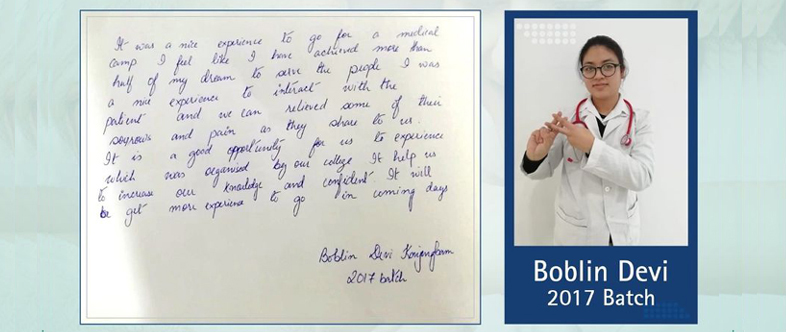 It was a nice experience to go for a medical
camp I feel like I have achieved more than
half of my dream to serve the people I was
a nice experience to interact with the
patient and we can relieved some of their
sorrows and pain as they share to us.
It is a good opportunity for us to experience
which was organised by our college It help us
to increase our knowledge and confident It will
be get more experience to go in coming days
Boblin Devi
2017 batch
Boblin Devi
2017 Batch